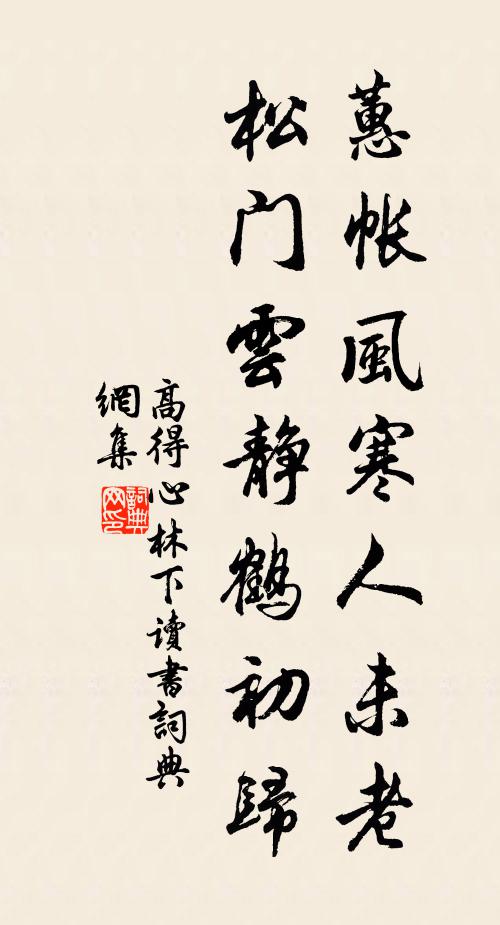 蕙帳風寒人未老
松门雲静鶴初歸
高得心林下讀書詞典
網集
詞典
网印